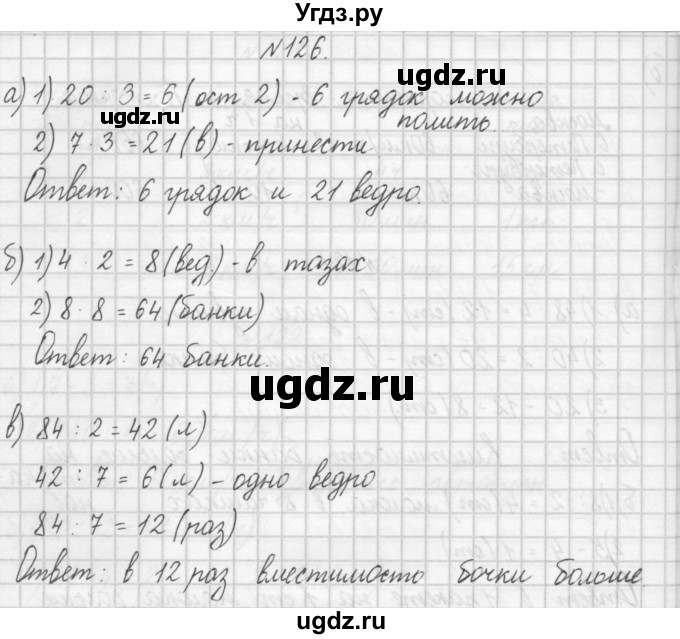 Угдз.ру
№126.
а) 1) 20 : 3 = 6 (ост 2) - 6 грядок можно
полить.
2) 7 · 3 = 21 (в) - принести
Ответ: 6 грядок и 21 ведро.
б) 1) 4 · 2 = 8 (вед.) - в тазах
2) 8 · 8 = 64 (банки)
Ответ: 64 банки.
в) 84 : 2 = 42 (л)
42 : 7 = 6 (л) - одно ведро
84 : 7 = 12 (раз)
Ответ: в 12 раз вместимость бочки больше.
ugdz.ru
ugdz.ru
ugdz.ru
ugdz.ru
ugdz.ru